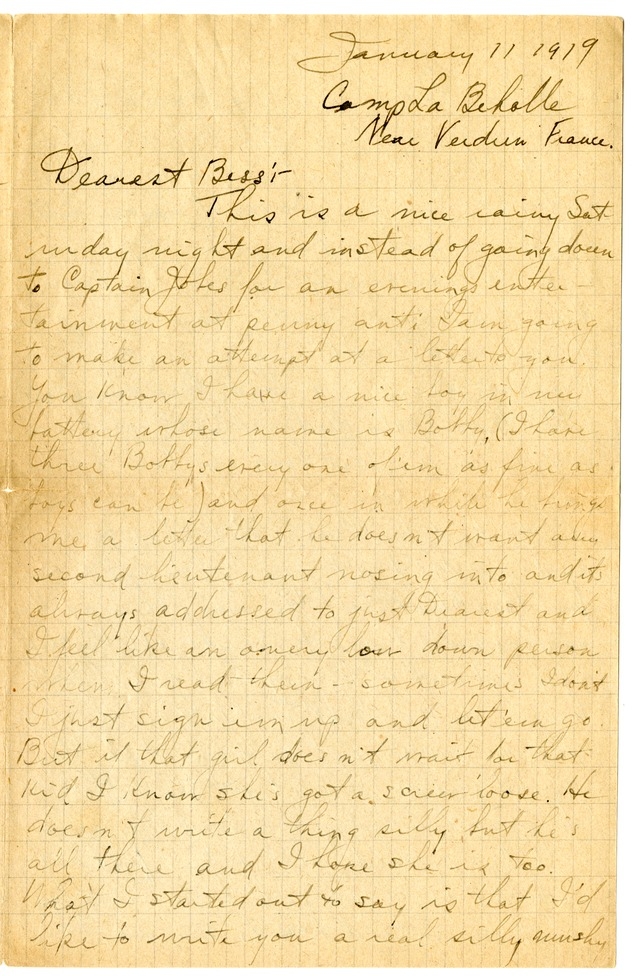 January 11 1919
Camp La Beholle
Near Verdun France.
Dearest Bess:-
This is a nice rainy Sat
urday night and instead of going down
to Captain Jobes for an evenings enter-
tainment at penny anti I am going
to make an attempt at a letter to you.
You know I have a nice boy in my
battery whose name is Bobby, (I have
three Bobbys every one of em as fine as
boys can be) and once in while he brings
me a letter that he doesn't want any
second lieutenant nosing into and its
always addressed to just Dearest and
I feel like an onery low down person
when I read them - sometimes I don't
I just sign em up and let em go.
But if that girl doesn't wait for that
kid I know she's got a screw loose. He
doesn't write a thing silly but he's
all there and I hope she is too.
What I started out to say is that I'd
like to write you a real silly mushy